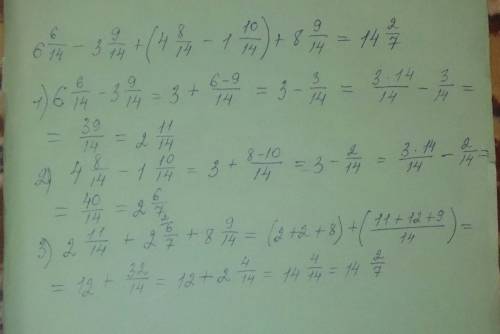 6 6/14 − 3 9/14 + (4 8/14 − 1 10/14) + 8 9/14 = 14 2/7
1) 6 6/14 − 3 9/14 = 3 + (6−9)/14 = 3 − 3/14 = (3·14)/14 − 3/14 =
= 39/14 = 2 11/14
2) 4 8/14 − 1 10/14 = 3 + (8−10)/14 = 3 − 2/14 = (3·14)/14 − 2/14 =
= 40/14 = 2 6/7
3) 2 11/14 + 2 6/7 + 8 9/14 = (2+2+8) + ((11+12+9)/14) =
= 12 + 32/14 = 12 + 2 4/14 = 14 4/14 = 14 2/7